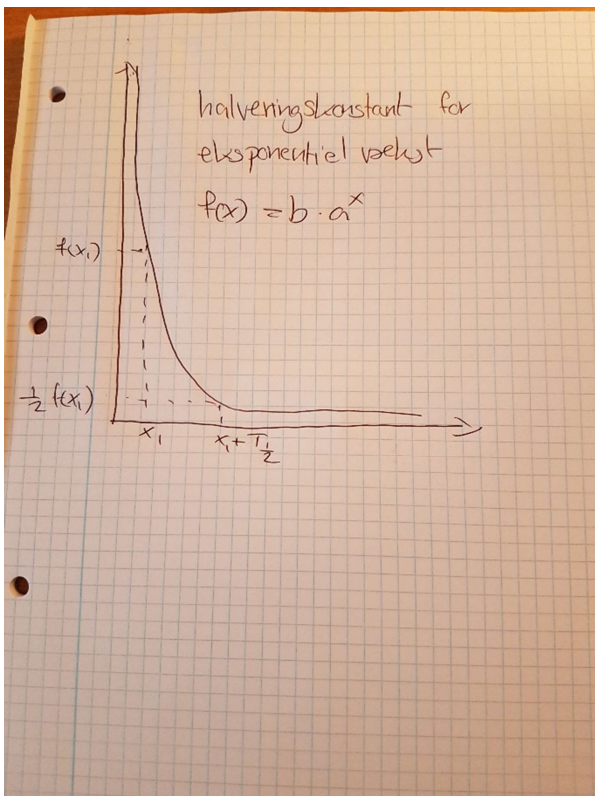 halveringskonstant for
eksponentiel vækst
f(x) = b · aˣ
f(x₁)
½ f(x₁)
x₁ x₁ + T½